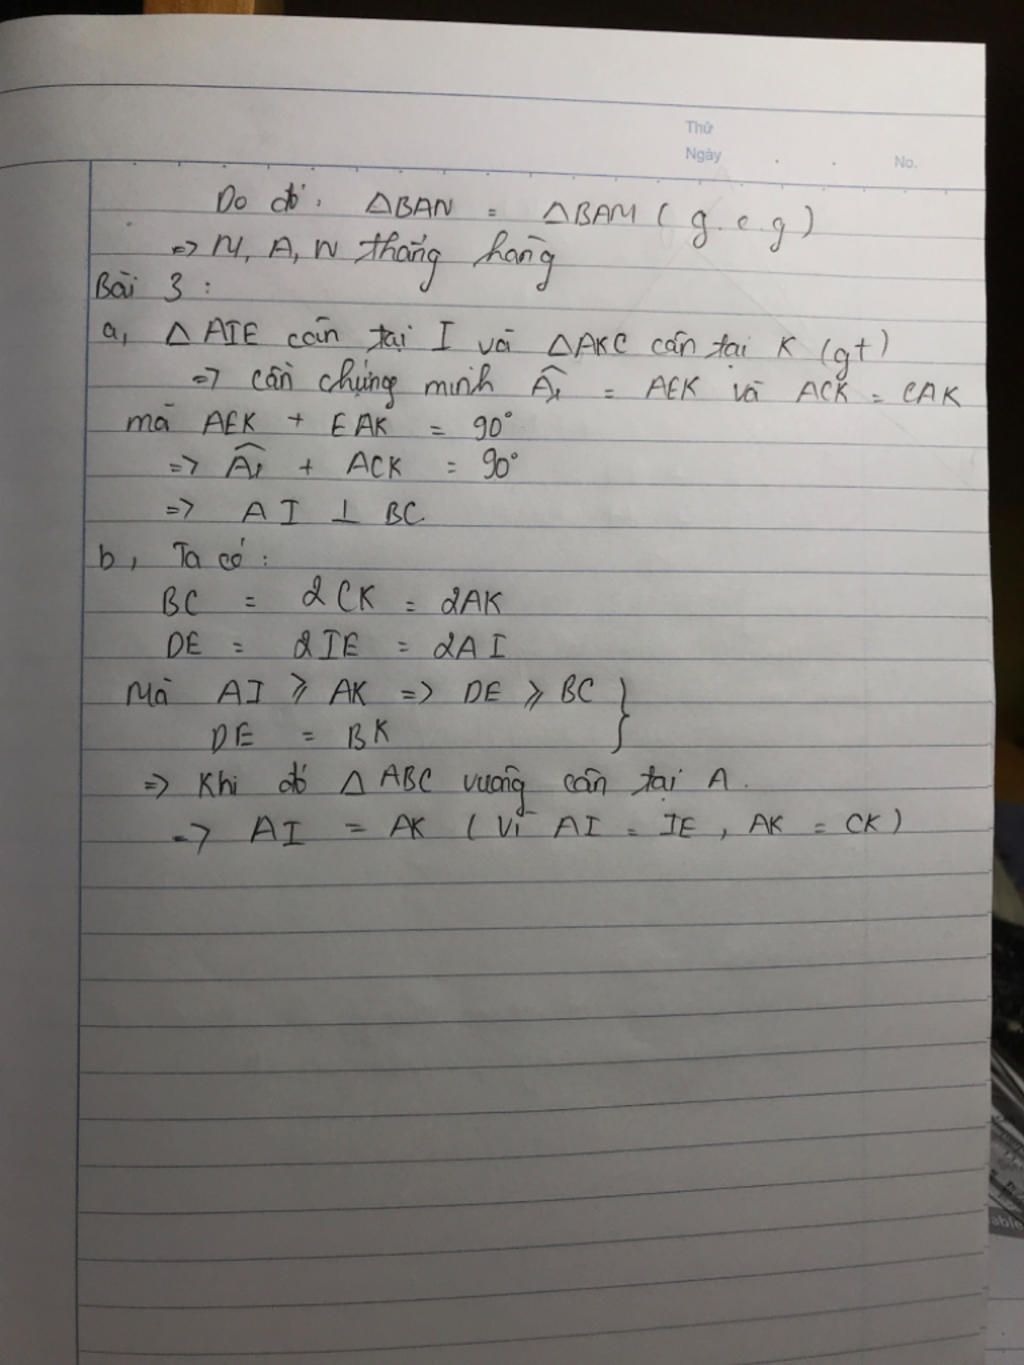 Thứ
Ngày . . No.
Do đó, ΔBAN = ΔBAM (g.c.g)
=> M, A, N thẳng hàng
Bài 3 :
a, Δ AIE cân tại I và ΔAKC cân tại K (gt)
=> cần chứng minh Â₁ = AEK và ACK = CAK
mà AEK + EAK = 90°
=> Â₁ + ACK = 90°
=> AI ⊥ BC
b, Ta có :
BC = 2CK = 2AK
DE = 2IE = 2AI
Mà AI ⩾ AK => DE ⩾ BC }
DE = BK
=> Khi đó Δ ABC vuông cân tại A.
=> AI = AK (Vì AI = IE, AK = CK)